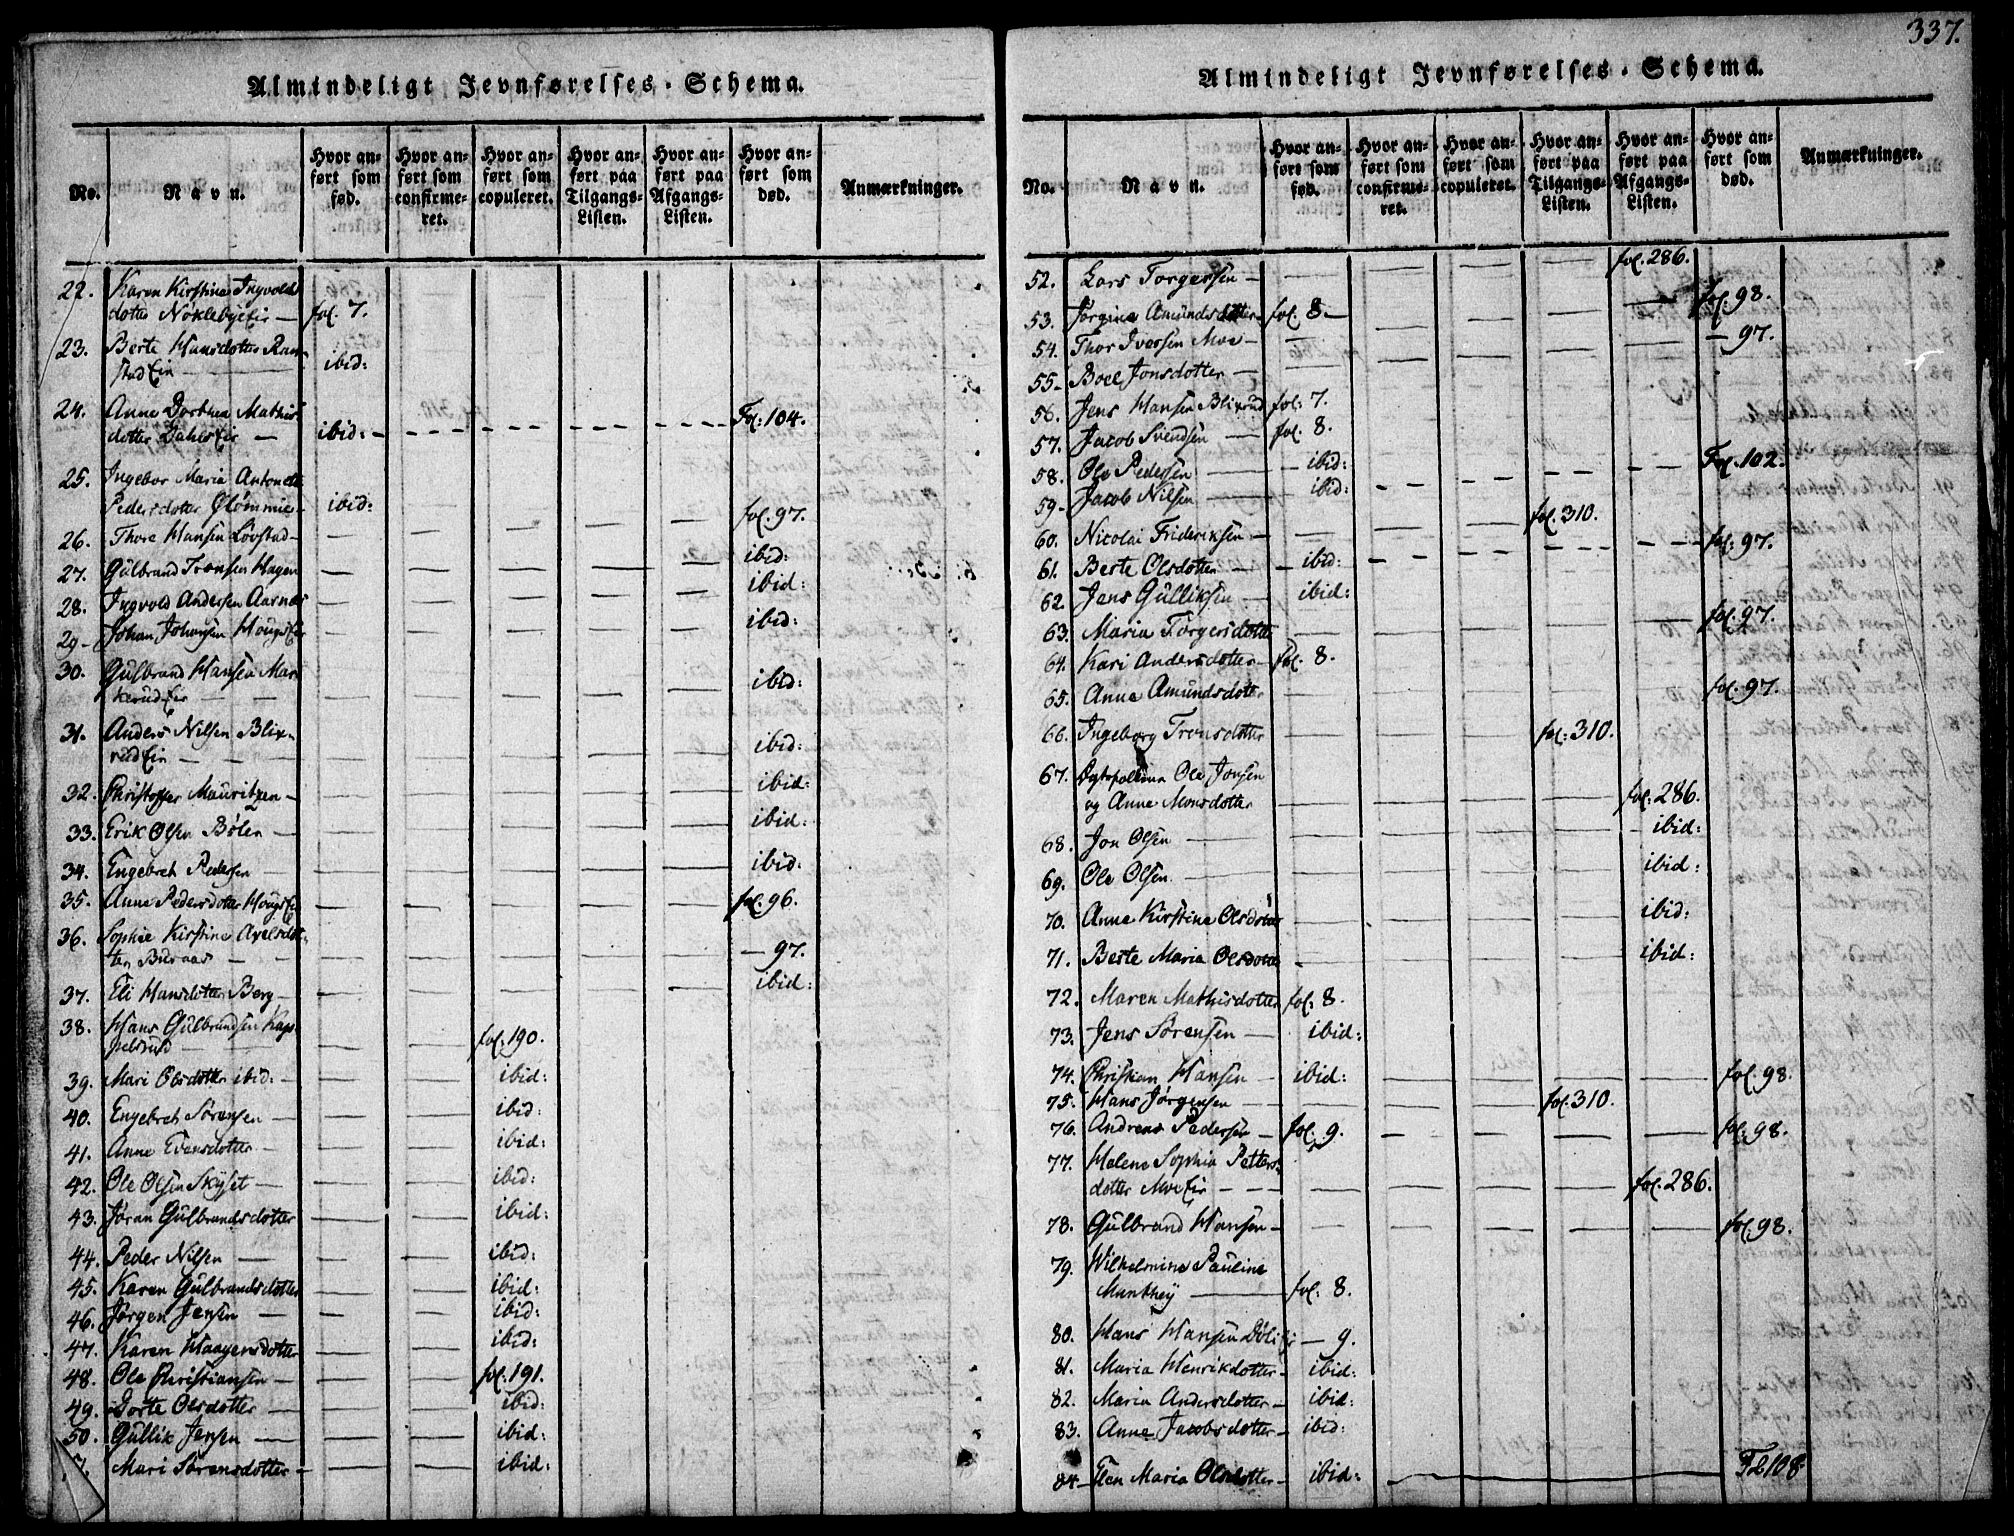 337.
Almindeligt Jevnførelses-Schema.
No. Navn. Hvor anført som fød. Hvor anført som confirmeret. Hvor anført som copuleret. Hvor anført paa Tilgangs-Listen. Hvor anført paa Afgangs-Listen. Hvor anført som død. Anmærkninger.
22. Karen Kirstine Ingvolds
dotter Nøklebye Eir — fol. 7.
23. Berte Hansdotter Ram
stad Ein — ibid:
24. Anne Dorthea Mathis
dotter Dahls Eir — ibid: Fol: 104.
25. Ingebor Maria Antonette
Pedersdotter Glømmie ibid:
26. Thore Hansen Løvstad — fol. 97.
27. Gulbrand Tronsen Hagen ibid:
28. Ingvold Andersen Aarnæs ibid:
29. Johan Johansen Hougs Eir ibid:
30. Gulbrand Hansen Mar
kerud Eir — ibid:
31. Anders Nilsen Blix
rud Ein — ibid:
32. Christoffer Mauritzen — ibid:
33. Erik Olsen Bølen — ibid:
34. Engebret Pedersen — ibid:
35. Anne Pedersdotter Hougs Eir fol. 96.
36. Sophie Kirstine Axelsdot
ter Buraas — 97.
37. Eli Hansdotter Berg — ibid:
38. Hans Gulbrandsen Kap
pelsrud fol. 190.
39. Mari Olsdotter ibid. — ibid:
40. Engebret Sørensen — ibid:
41. Anne Evensdotter — ibid:
42. Ole Olsen Skyset — ibid:
43. Jøran Gulbrandsdotter ibid:
44. Peder Nilsen — ibid:
45. Karen Gulbrandsdotter ibid:
46. Jørgen Jensen — ibid:
47. Karen Haagensdotter ibid:
48. Ole Christiansen — fol. 191.
49. Dorte Olsdotter — ibid:
50. Gullik Jensen — ibid:
Mari Sørensdotter — ibid:
Almindeligt Jevnførelses-Schema.
No. Navn. Hvor anføre som fød. Hvor anført som confirmeret. Hvor anført som copuleret. Hvor anført paa Tilgangs-Listen. Hvor anført paa Afgangs-Listen. Hvor anført som død. Anmærkninger.
52. Lars Torgersen — fol. 286.
53. Jørgine Amundsdotter fol. 8. — fol. 98.
54. Thor Iversen Moe — 97.
55. Boel Jonsdotter —
56. Jens Hansen Blixrud fol: 7.
57. Jacob Svendsen — fol. 8.
58. Ole Pedersen — ibid:
59. Jacob Nilsen — ibid: Fol. 102.
60. Nicolai Frideriksen — fol. 310.
61. Berte Olsdotter — ibid: fol. 97.
62. Jens Gulliksen — ibid:
63. Maria Torgersdotter fol. 97.
64. Kari Andersdotter — fol. 8.
65. Anne Amundsdotter fol. 97.
66. Ingeborg Tronsdotter fol: 310.
67. Ole Jonsen
og Anne Monsdotter fol. 286.
68. Jon Olsen — ibid:
69. Ole Olsen ibid:
70. Anne Kirstine Olsdotter ibid:
71. Berte Maria Olsdotter ibid:
72. Maren Mathisdotter fol. 8.
73. Jens Sørensen — ibid:
74. Christian Hansen — ibid: fol. 98.
75. Hans Jørgensen — fol. 310.
76. Andreas Pedersen — fol. 9. fol. 98.
77. Helene Sophia Petters
dotter Moe Eir — fol. 286.
78. Gulbrand Hansen — fol. 98.
79. Wilhelmine Pauline
Munthey — fol. 8.
80. Hans Hansen Døli Eir — 9.
81. Maria Henrikdotter — ibid:
82. Maria Andersdotter — ibid:
83. Anne Jacobsdotter — ibid:
84 — Elen Maria Olsdotter — ibid: Fol 108